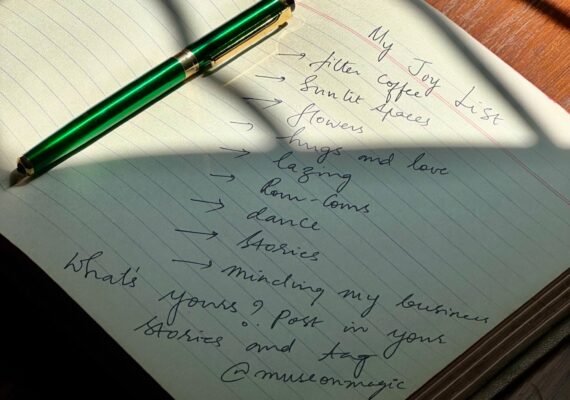 My Joy List
→ filter coffee
→ Sunlit spaces
→ flowers
→ hugs and love
→ lazing
→ Rom-Coms
→ dance
→ stories
→ minding my business
What's yours? Post in your
stories and tag
@museonmagic